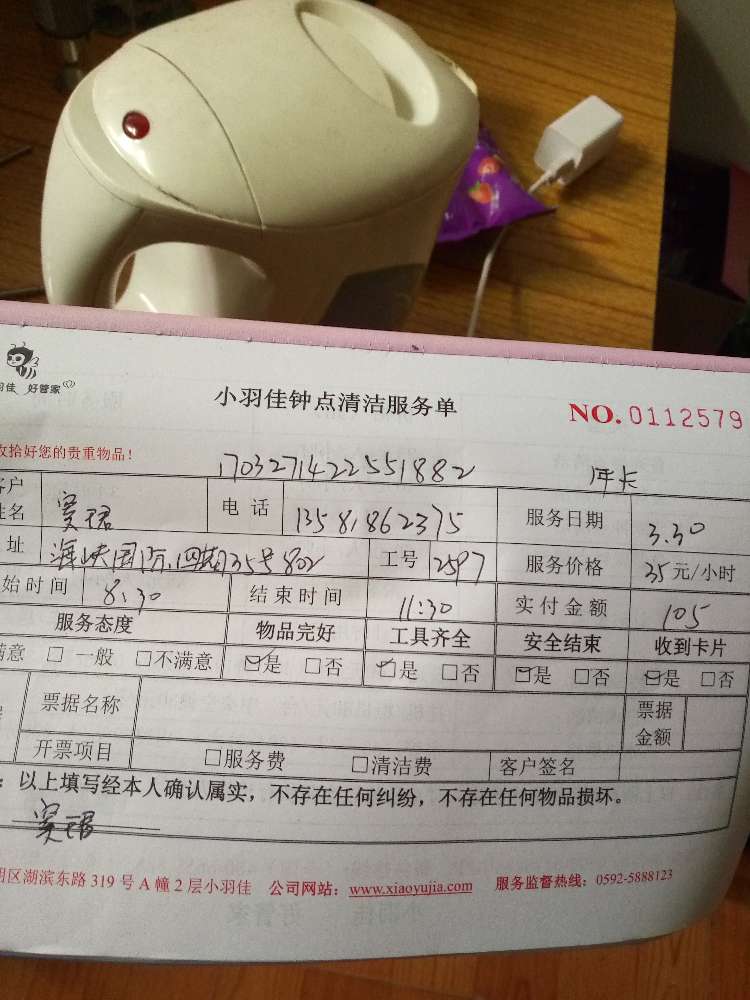 羽佳 好管家
小羽佳钟点清洁服务单
NO. 0112579
收拾好您的贵重物品!
1703271422551882 年卡
客户姓名 窦珺 电话 13581862375 服务日期 3.30
址 海峡国际四期35号802 工号 2597 服务价格 35元/小时
始时间 8:30 结束时间 11:30 实付金额 105
服务态度 物品完好 工具齐全 安全结束 收到卡片
满意 □ 一般 □不满意 ☑是 □否 ☑是 □否 ☑是 □否 ☑是 □否
票据名称 票据金额
开票项目 □服务费 □清洁费 客户签名
:以上填写经本人确认属实,不存在任何纠纷,不存在任何物品损坏。
窦珺
明区湖滨东路 319 号 A 幢 2 层小羽佳 公司网站:www.xiaoyujia.com 服务监督热线:0592-5888123